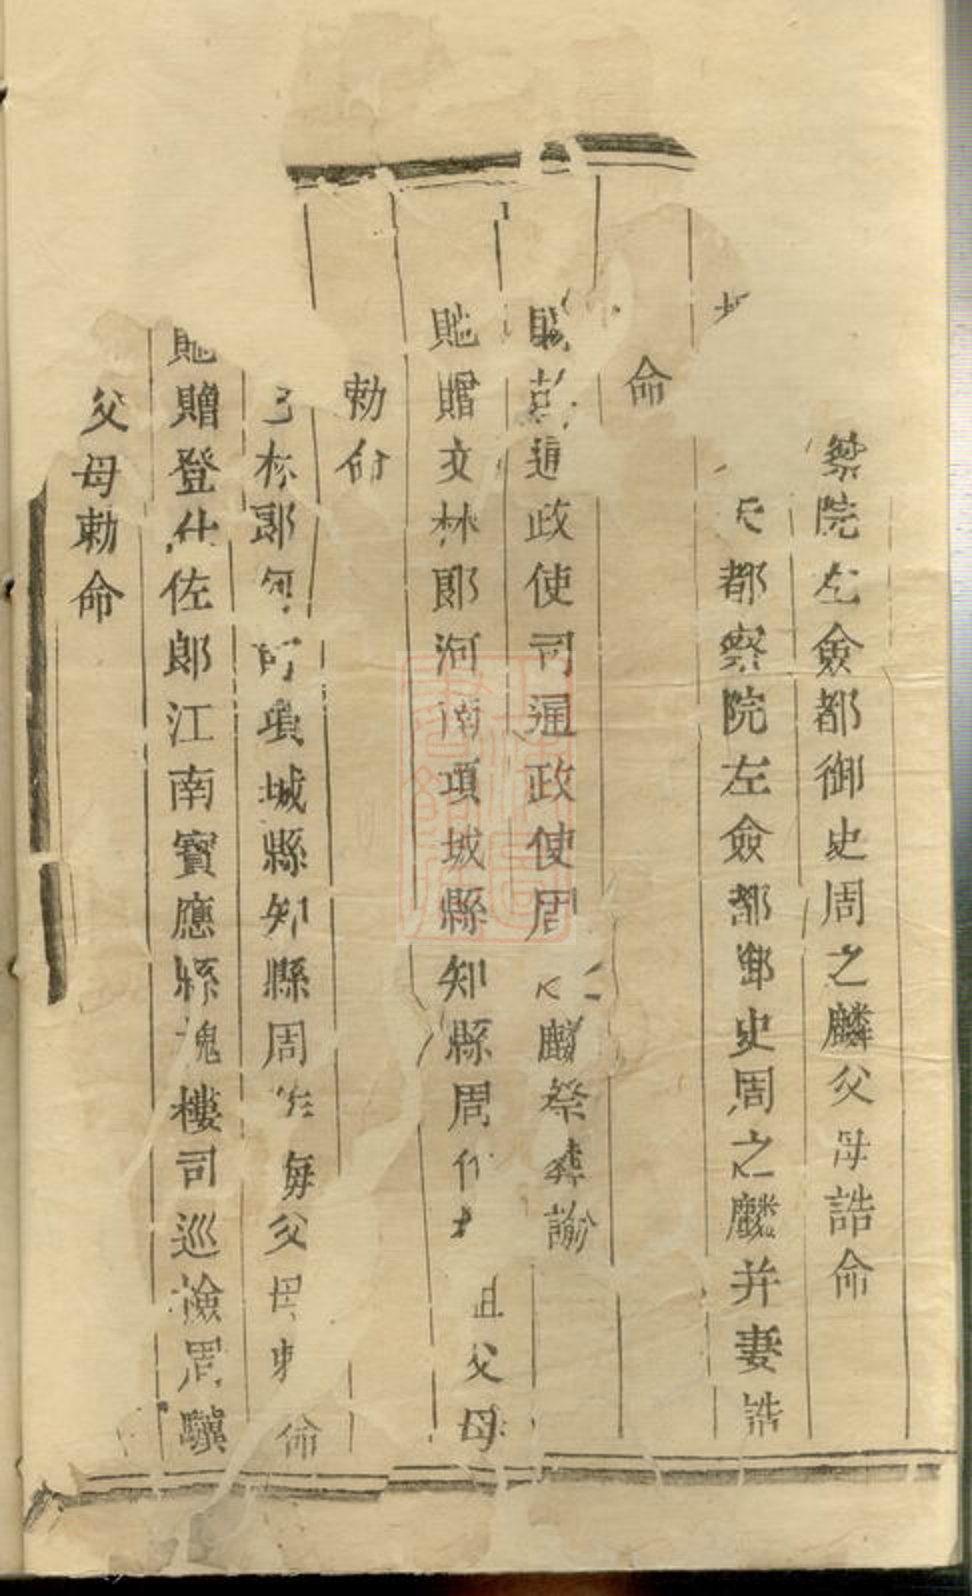 察院左僉都御史周之麟父母誥命
都察院左僉都御史周之麟并妻誥
命
通政使司通政使周之麟祭葬諭
貤贈文林郎河南項城縣知縣周祖父母
勅命
林郎河南項城縣知縣周父母勅命
貤贈登仕佐郎江南寶應縣槐樓司巡檢周驥
父母勅命